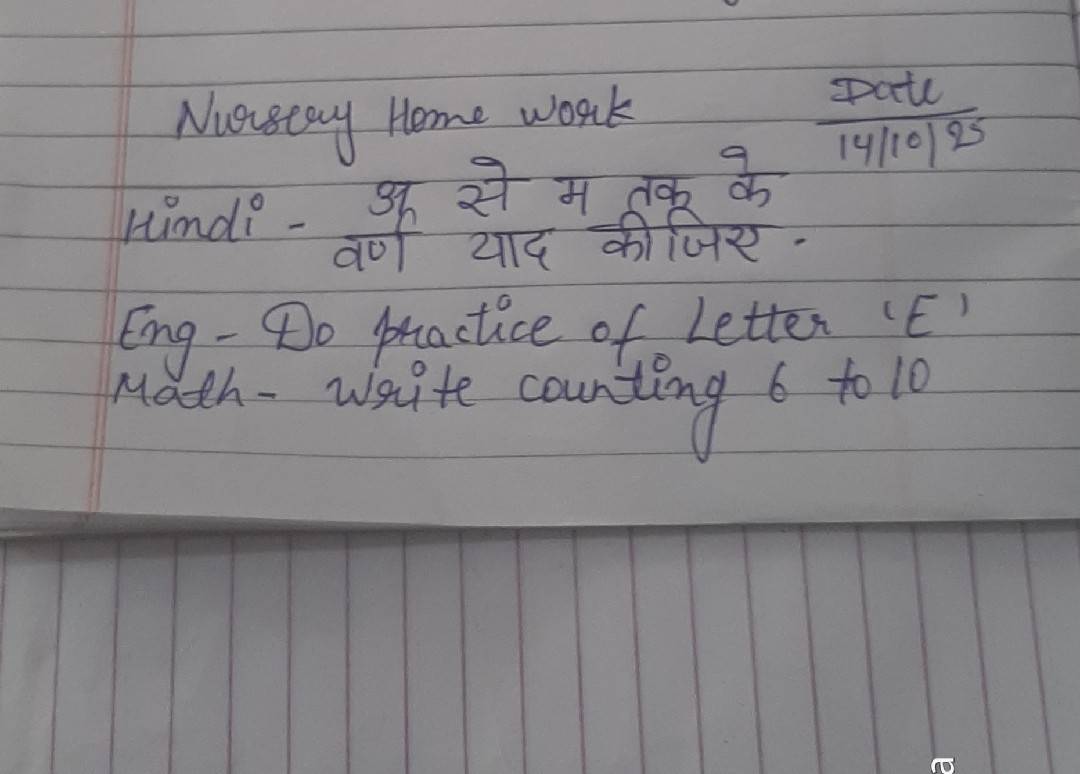 Nursery Home work
Date
14/10/25
Hindi - अ से म तक के
वर्ण याद कीजिए .
Eng - Do practice of Letter 'E'
Math - Write counting 6 to 10
a